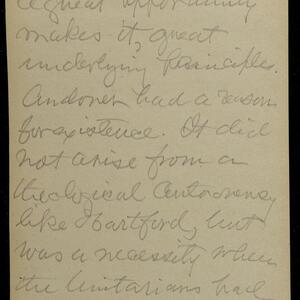 a great opportunity
makes it, great
underlying Principles.
Andover had a reason
for existence. It did
not arise from a
theological Controversy
like Hartford, but
was a necessity when
the Unitarians had